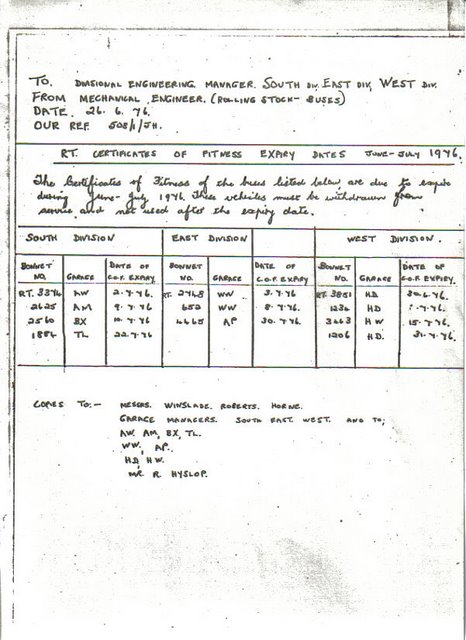 TO. DIVISIONAL ENGINEERING MANAGER. SOUTH DIV, EAST DIV, WEST DIV.
FROM MECHANICAL ENGINEER. (ROLLING STOCK - BUSES)
DATE. 26. 6. 76.
OUR REF. 508/1/JH.
RT. CERTIFICATES OF FITNESS EXPIRY DATES JUNE-JULY 1976.
The Certificates of Fitness of the buses listed below are due to expire
during June-July 1976. These vehicles must be withdrawn from
service and not used after the expiry date.
SOUTH DIVISION EAST DIVISION WEST DIVISION.
BONNET NO. GARAGE DATE OF C.O.F. EXPIRY BONNET NO. GARAGE DATE OF C.O.F. EXPIRY BONNET NO. GARAGE DATE OF C.O.F. EXPIRY.
RT. AW 2.7.76. RT. WW 3.7.76 RT. 3851 HD 30.6.76.
2625 AM 9.7.76 652 WW 8.7.76 1234 HD .7.76
2560 BX .7.76 4465 AP 30.7.76 HW 15.7.76
1884 TL 22.7.76 1206 HD. .7.76
COPIES TO:- MESSRS. WINSLADE. ROBERTS. HORNE.
GARAGE MANAGERS. SOUTH EAST. WEST. AND TO;
AW. AM, BX, TL.
WW, AP.
HD, HW.
MR R HYSLOP.